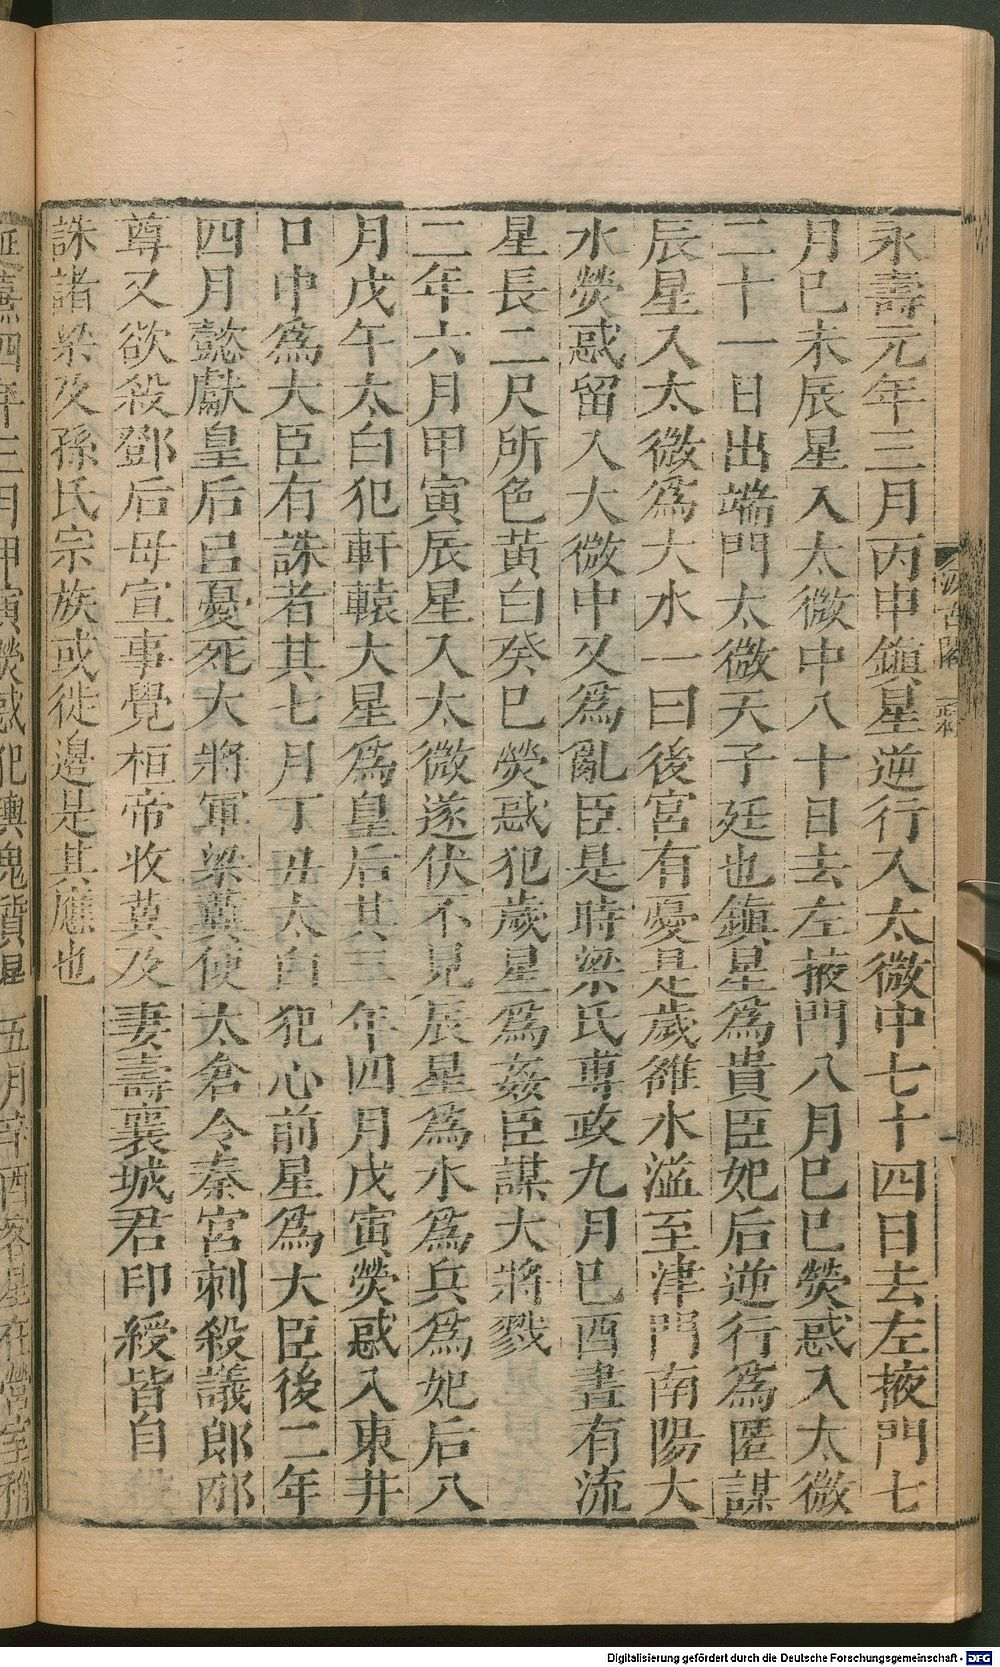 永壽元年三月丙申鎭星逆行入太微中七十四日去左掖門七
月巳未辰星入太微中八十日去左掖門八月巳巳熒惑入太微
二十一日出端門太微天子廷也鎭星爲貴臣妃后逆行爲匿謀
辰星入太微爲大水一曰後宮有憂是歲雒水溢至津門南陽大
水熒惑留入大微中又爲亂臣是時梁氏專政九月巳酉晝有流
星長二尺所色黃白癸巳熒惑犯歲星爲姦臣謀大將戮
二年六月甲寅辰星入太微遂伏不見辰星爲水爲兵爲妃后八
月戊午太白犯軒轅大星爲皇后其三年四月戊寅熒惑入東井
口中爲大臣有誅者其七月丁丑太白犯心前星爲大臣後二年
四月懿獻皇后㠯憂死大將軍梁冀使太倉令秦宮刺殺議郎邴
尊又欲殺鄧后母宣事覺桓帝收冀及妻壽襄城君印綬皆自
誅諸梁及孫氏宗族或徙邊是其應也
延熹四年三月甲寅熒惑犯輿鬼質星五月辛酉客星在營室稍
汲古閣
正本
Digitalisierung gefördert durch die Deutsche Forschungsgemeinschaft - DFG